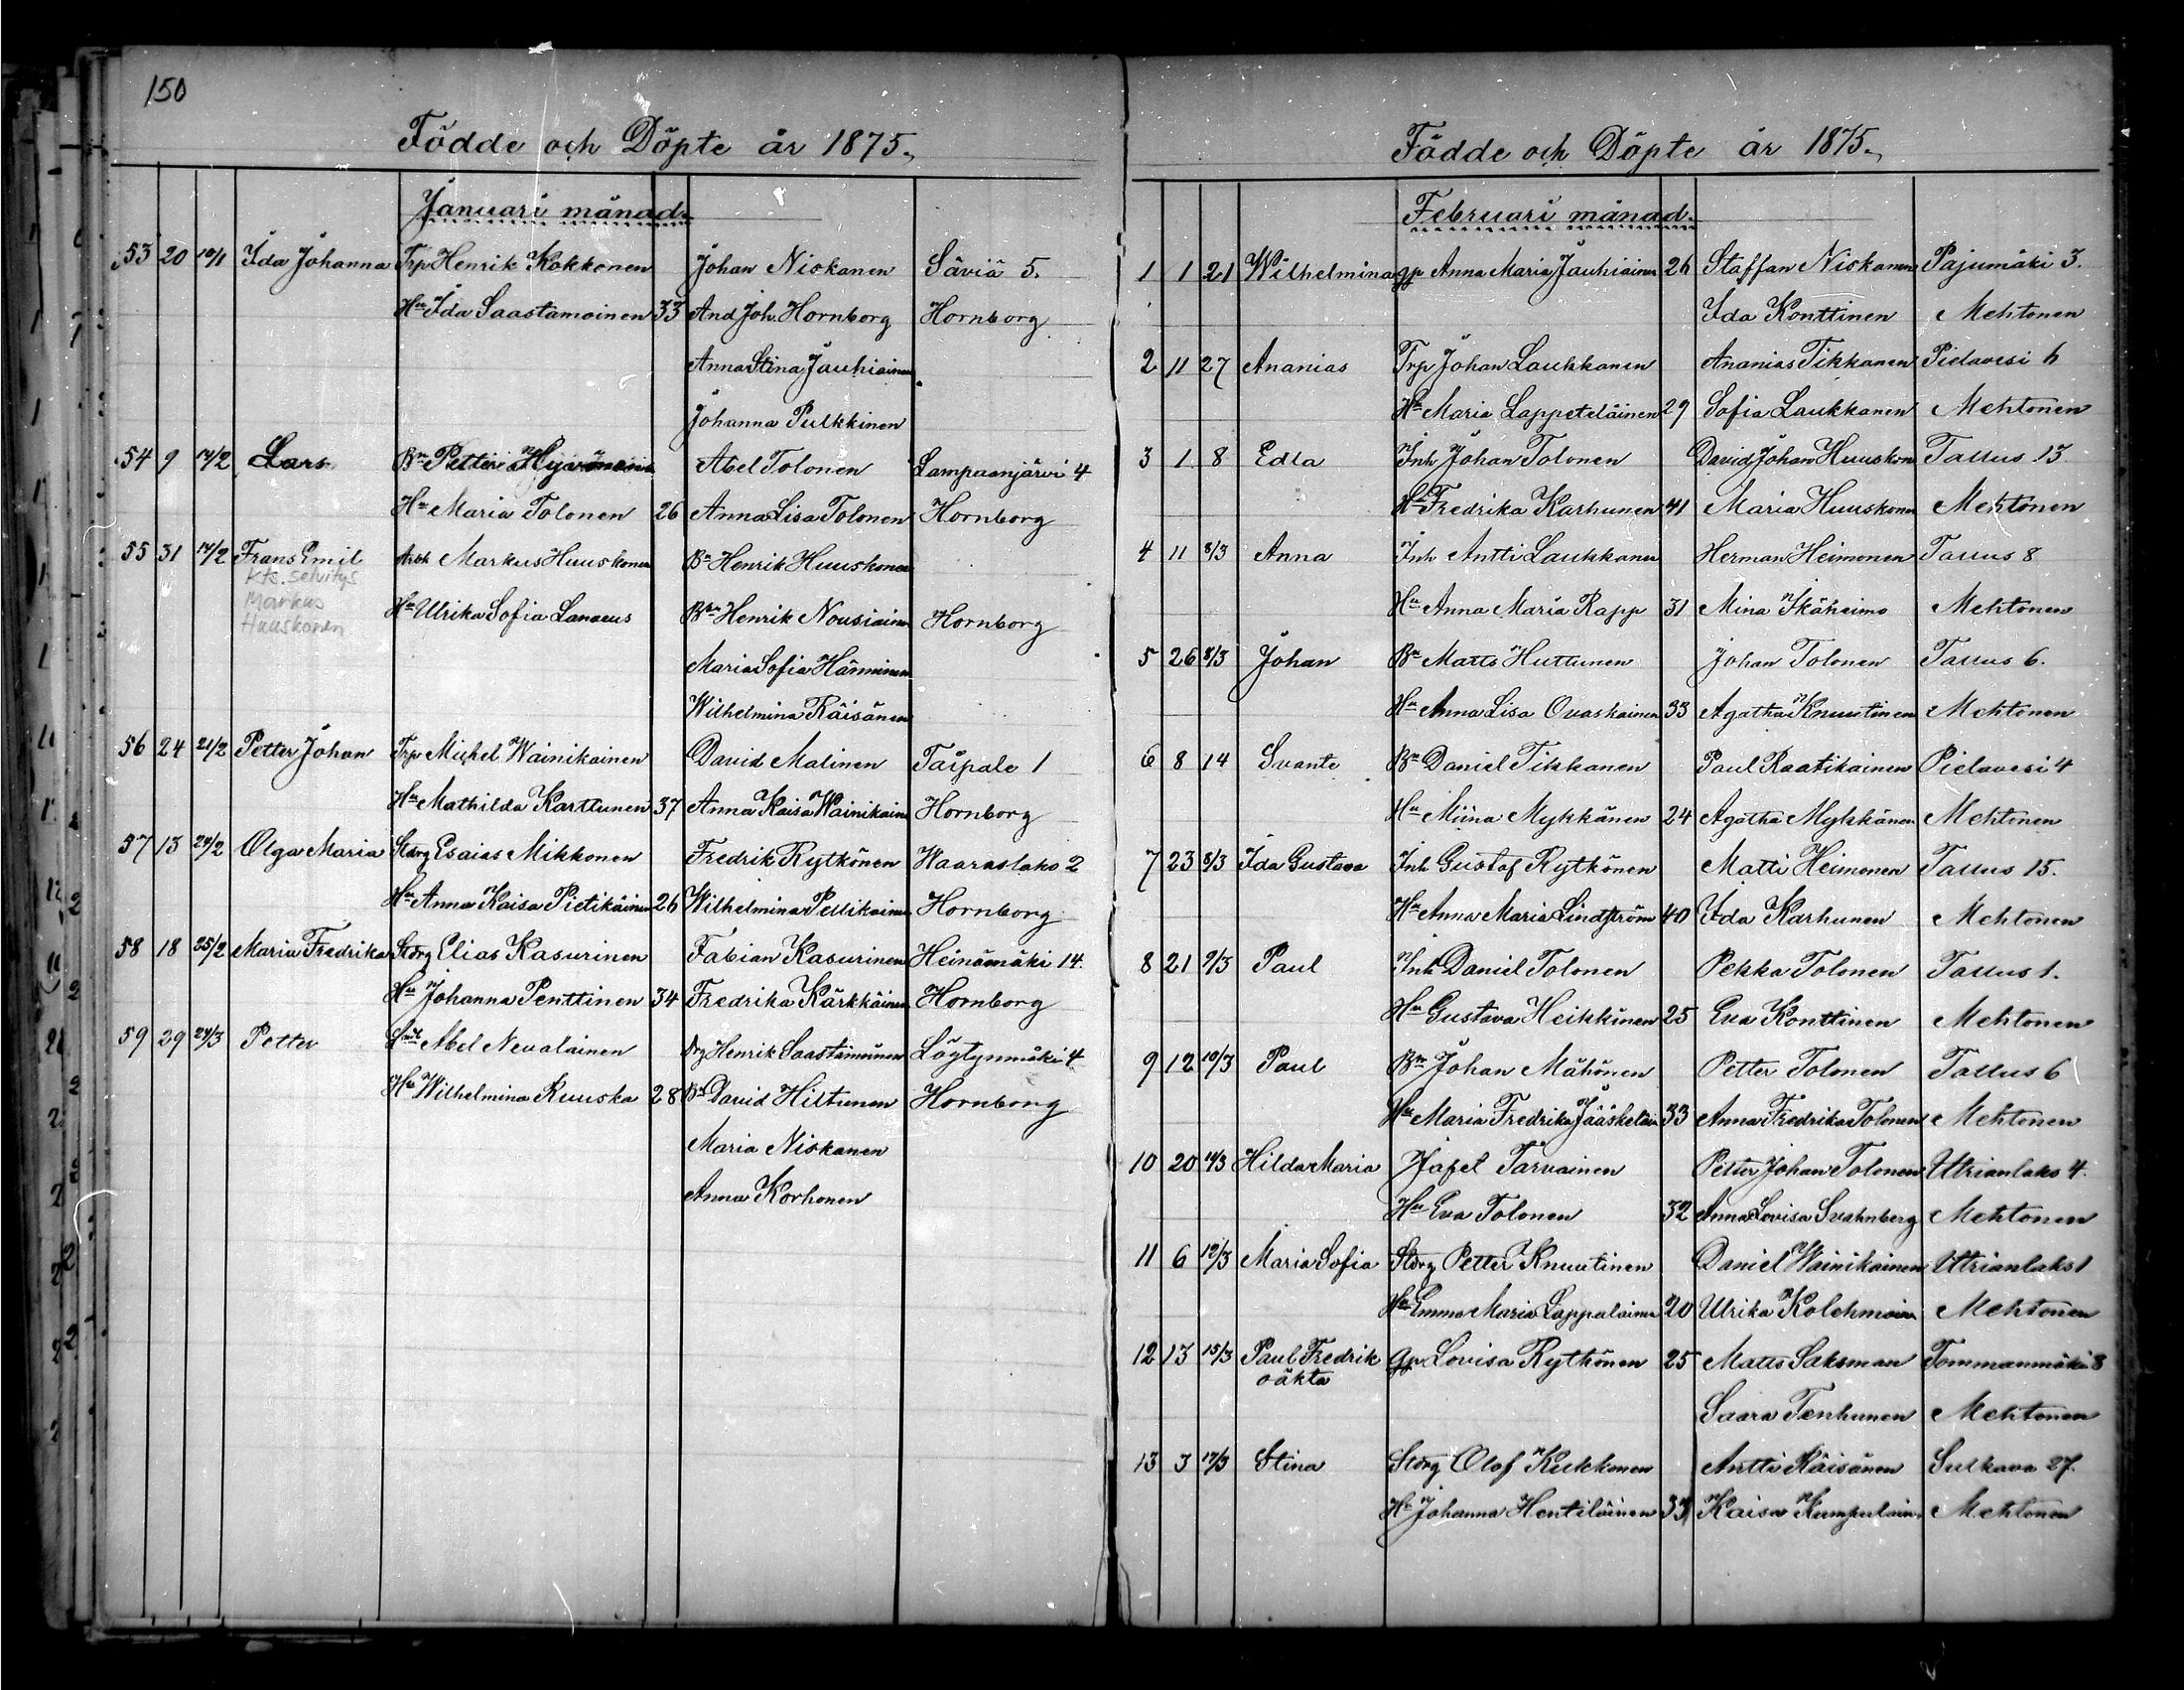 150
Födde och Döpte år 1875.
Januari månad.
53 20 Ida Johanna Trp Henrik Kokkonen Johan Niskanen Säviä 5.
Hu Ida Saastamoinen 33 And Joh. Hornborg Hornborg
Anna Stina Jauhiainen
Johanna Pulkkinen
54 9 14/2 Lars Bn Petter Hyvönen Abel Tolonen Lampaanjärvi 4
Hu Maria Tolonen 26 Anna Lisa Tolonen Hornborg
55 31 14/2 Frans Emil Arbk Markus Huuskonen Bn Henrik Huuskonen
Kts. selvitys
Markus
Huuskonen
Hu Ulrika Sofia Lanaeus Bn Henrik Nousiainen Hornborg
Maria Sofia Hänninen
Wilhelmina Räisänen
56 24 21/2 Petter Johan Trp Michel Wainikainen David Malinen Taipale 1
Hu Mathilda Karttunen 37 Anna Kaisa Wainikain Hornborg
57 13 24/2 Olga Maria Stdrg Esaias Mikkonen Fredrik Rytkönen Waaraslaks 2
Hu Anna Kaisa Pietikäinen 26 Wilhelmina Pellikainen Hornborg
58 18 25/2 Maria Fredrika Stdrg Elias Kasurinen Fabian Kasurinen Heinämäki 14.
Hu Johanna Penttinen 34 Fredrika Kärkkäinen Hornborg
59 29 24/3 Petter Abel Nevalainen Drg Henrik Saastamoinen Löytynmäki 4
Hu Wilhelmina Ruuska 28 Bn David Hiltunen Hornborg
Maria Niskanen
Anna Korhonen
Födde och Döpte år 1875.
Februari månad.
1 1 21 Wilhelmina gp Anna Maria Jauhiainen 26 Staffan Niskanen Pajumäki 3.
Ida Konttinen Mehtonen
2 11 27 Ananias Trp Johan Laukkanen Ananias Tikkanen Pielavesi 6
Hu Maria Lappeteläinen 29 Sofia Laukkanen Mehtonen
3 1 8 Edla Inh Johan Tolonen David Johan Huuskon Tallus 13
Hu Fredrika Karhunen 41 Maria Huuskonen Mehtonen
4 11 8/3 Anna Inh Antti Laukkanen Herman Heimonen Tallus 8
Hu Anna Maria Rapp 31 Mina Ikäheimo Mehtonen
5 26 8/3 Johan Bn Matts Huttunen Johan Tolonen Tallus 6.
Hu Anna Lisa Ovaskainen 33 Agatha Knuutinen Mehtonen
6 8 14 Svante Bn Daniel Tikkanen Paul Raatikainen Pielavesi 4
Hu Miina Mykkänen 24 Agatha Mykkänen Mehtonen
7 23 8/3 Ida Gustava Inh Gustaf Rytkönen Matti Heimonen Tallus 15.
Hu Anna Maria Lindström 40 Ida Karhunen Mehtonen
8 21 9/3 Paul Inh Daniel Tolonen Pekka Tolonen Tallus 1.
Hu Gustava Heikkinen 25 Eva Konttinen Mehtonen
9 12 10/3 Paul Bn Johan Mähönen Petter Tolonen Tallus 6
Hu Maria Fredrika Jääskeläin 33 Anna Fredrika Tolonen Mehtonen
10 20 14/3 Hilda Maria Jafet Tarvainen Petter Johan Tolonen Utrianlaks 4.
Hu Eva Tolonen 32 Anna Lovisa Svahnberg Mehtonen
11 6 12/3 Maria Sofia Stdrg Petter Knuutinen Daniel Wainikainen Utrianlaks 1
Hu Emma Maria Lappalainen 20 Ulrika Kolehmain Mehtonen
12 13 15/3 Paul Fredrik gp Lovisa Rytkönen 25 Matts Saksman Tommanmäki 8
oäkta
Saara Tenhunen Mehtonen
13 3 17/3 Stina Stdrg Olof Kukkonen Antti Räisänen Sulkava 27.
Hu Johanna Hentiläinen 33 Kaisa Kumpulain. Mehtonen